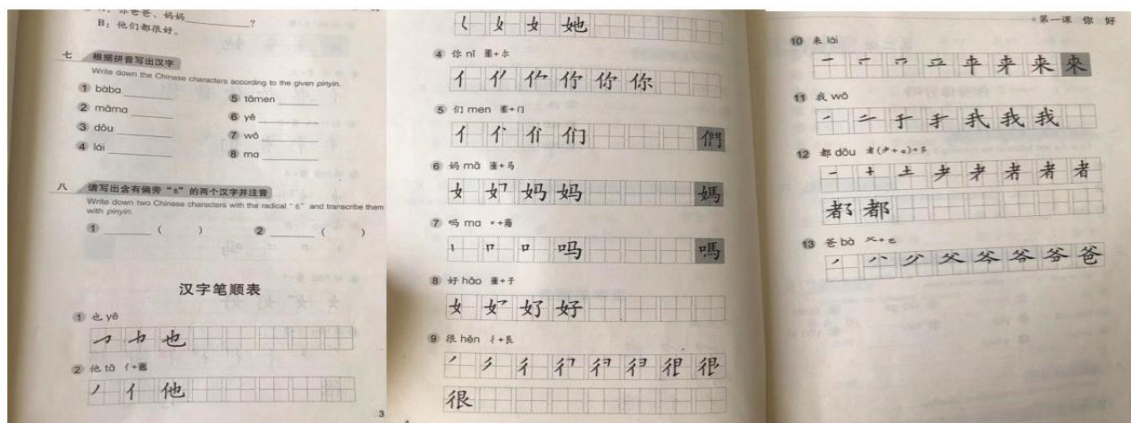 爸爸、妈妈________?
B: 他们都很好。
七 根据拼音写出汉字
Write down the Chinese characters according to the given pinyin.
① bàba ______ ⑤ tāmen ______
② māma ______ ⑥ yě ______
③ dōu ______ ⑦ wǒ ______
④ lái ______ ⑧ ma ______
八 请写出含有偏旁“ ”的两个汉字并注音
Write down two Chinese characters with the radical “ ” and transcribe them
with pinyin.
① ______ ( ) ② ______ ( )
汉字笔顺表
① 也 yě
也
② 他 tā 亻+
丿 亻 他
3
女 她
④ 你 nǐ +尔
亻 你
⑤ 们 men +门
亻 们 們
⑥ 妈 mā +马
女 妈 妈 媽
⑦ 吗 ma
丨 口 吗 嗎
⑧ 好 hǎo +子
女 好
⑨ 很 hěn 彳+艮
丿 彳 很
很
第一课 你 好
⑩ 来 lái
一 来 來
⑪ 我 wǒ
丿 二 于 手 我 我 我
⑫ 都 dōu
一 十 土 耂 者 者 者
都
⑬ 爸 bà 父+巴
丿 八 父 爸